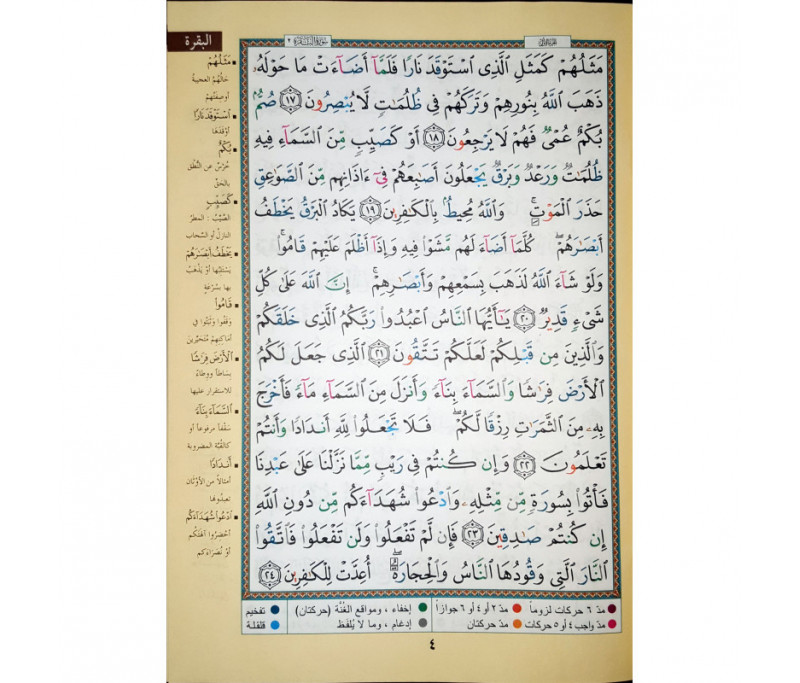 البقرة
سورة البقرة ٢
الجزء الأول
مَثَلُهُمْ كَمَثَلِ ٱلَّذِى ٱسْتَوْقَدَ نَارًا فَلَمَّآ أَضَآءَتْ مَا حَوْلَهُۥ
ذَهَبَ ٱللَّهُ بِنُورِهِمْ وَتَرَكَهُمْ فِى ظُلُمَٰتٍ لَّا يُبْصِرُونَ ١٧ صُمٌّۢ
بُكْمٌ عُمْىٌ فَهُمْ لَا يَرْجِعُونَ ١٨ أَوْ كَصَيِّبٍ مِّنَ ٱلسَّمَآءِ فِيهِ
ظُلُمَٰتٌ وَرَعْدٌ وَبَرْقٌ يَجْعَلُونَ أَصَٰبِعَهُمْ فِىٓ ءَاذَانِهِم مِّنَ ٱلصَّوَٰعِقِ
حَذَرَ ٱلْمَوْتِ ۚ وَٱللَّهُ مُحِيطٌۢ بِٱلْكَٰفِرِينَ ١٩ يَكَادُ ٱلْبَرْقُ يَخْطَفُ
أَبْصَٰرَهُمْ ۖ كُلَّمَآ أَضَآءَ لَهُم مَّشَوْا۟ فِيهِ وَإِذَآ أَظْلَمَ عَلَيْهِمْ قَامُوا۟ ۚ
وَلَوْ شَآءَ ٱللَّهُ لَذَهَبَ بِسَمْعِهِمْ وَأَبْصَٰرِهِمْ ۚ إِنَّ ٱللَّهَ عَلَىٰ كُلِّ
شَىْءٍ قَدِيرٌ ٢٠ يَٰٓأَيُّهَا ٱلنَّاسُ ٱعْبُدُوا۟ رَبَّكُمُ ٱلَّذِى خَلَقَكُمْ
وَٱلَّذِينَ مِن قَبْلِكُمْ لَعَلَّكُمْ تَتَّقُونَ ٢١ ٱلَّذِى جَعَلَ لَكُمُ
ٱلْأَرْضَ فِرَٰشًا وَٱلسَّمَآءَ بِنَآءً وَأَنزَلَ مِنَ ٱلسَّمَآءِ مَآءً فَأَخْرَجَ
بِهِۦ مِنَ ٱلثَّمَرَٰتِ رِزْقًا لَّكُمْ ۖ فَلَا تَجْعَلُوا۟ لِلَّهِ أَندَادًا وَأَنتُمْ
تَعْلَمُونَ ٢٢ وَإِن كُنتُمْ فِى رَيْبٍ مِّمَّا نَزَّلْنَا عَلَىٰ عَبْدِنَا
فَأْتُوا۟ بِسُورَةٍ مِّن مِّثْلِهِۦ وَٱدْعُوا۟ شُهَدَآءَكُم مِّن دُونِ ٱللَّهِ
إِن كُنتُمْ صَٰدِقِينَ ٢٣ فَإِن لَّمْ تَفْعَلُوا۟ وَلَن تَفْعَلُوا۟ فَٱتَّقُوا۟
ٱلنَّارَ ٱلَّتِى وَقُودُهَا ٱلنَّاسُ وَٱلْحِجَارَةُ ۖ أُعِدَّتْ لِلْكَٰفِرِينَ ٢٤
▪ مَثَلُهُمْ
حَالُهُمُ العجيبةُ
أو صِفَتُهُمْ
▪ ٱسْتَوْقَدَ نَارًا
أوْقَدَهَا
▪ بُكْمٌ
خُرْسٌ عن النُّطْقِ
بالحَقِّ
▪ كَصَيِّبٍ
الصَّيِّبُ : المَطَرُ
النازِلُ أو السَّحاب
▪ يَخْطَفُ أَبْصَٰرَهُمْ
يَسْتَلِبُها أو يَذْهَبُ
بها بسُرْعَةٍ
▪ قَامُوا۟
وَقَفُوا وَثَبَتُوا في
أماكِنِهِمْ مُتَحَيِّرين
▪ ٱلْأَرْضَ فِرَٰشًا
بِسَاطاً ووِطَاءً
للاستقرار عليها
▪ ٱلسَّمَآءَ بِنَآءً
سَقْفاً مرفوعاً أو
كالقُبَّة المضروبة
▪ أَندَادًا
أمثالاً من الأوْثَان
تعبدُونها
▪ ٱدْعُوا۟ شُهَدَآءَكُم
أحْضِرُوا آلهَتَكُم
أوْ نُصَرَاءَكم
مدّ ٦ حركات لزوماً
مدّ ٢ أو ٤ أو ٦ جوازاً
إخفاء ، ومواقع الغُنَّة (حركتان)
تفخيم
مدّ واجب ٤ أو ٥ حركات
مدّ حركتان
إدغام ، وما لا يُلفَظ
قلقلة
٤